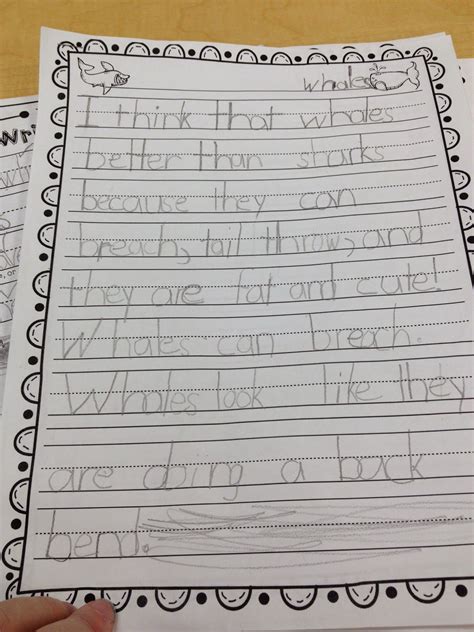 whales
I think that whales
better than sharks
because they can
breach, tail throw, and
they are fat and cute!
Whales can breach.
Whales look like they
are doing a back
bend.
Wri